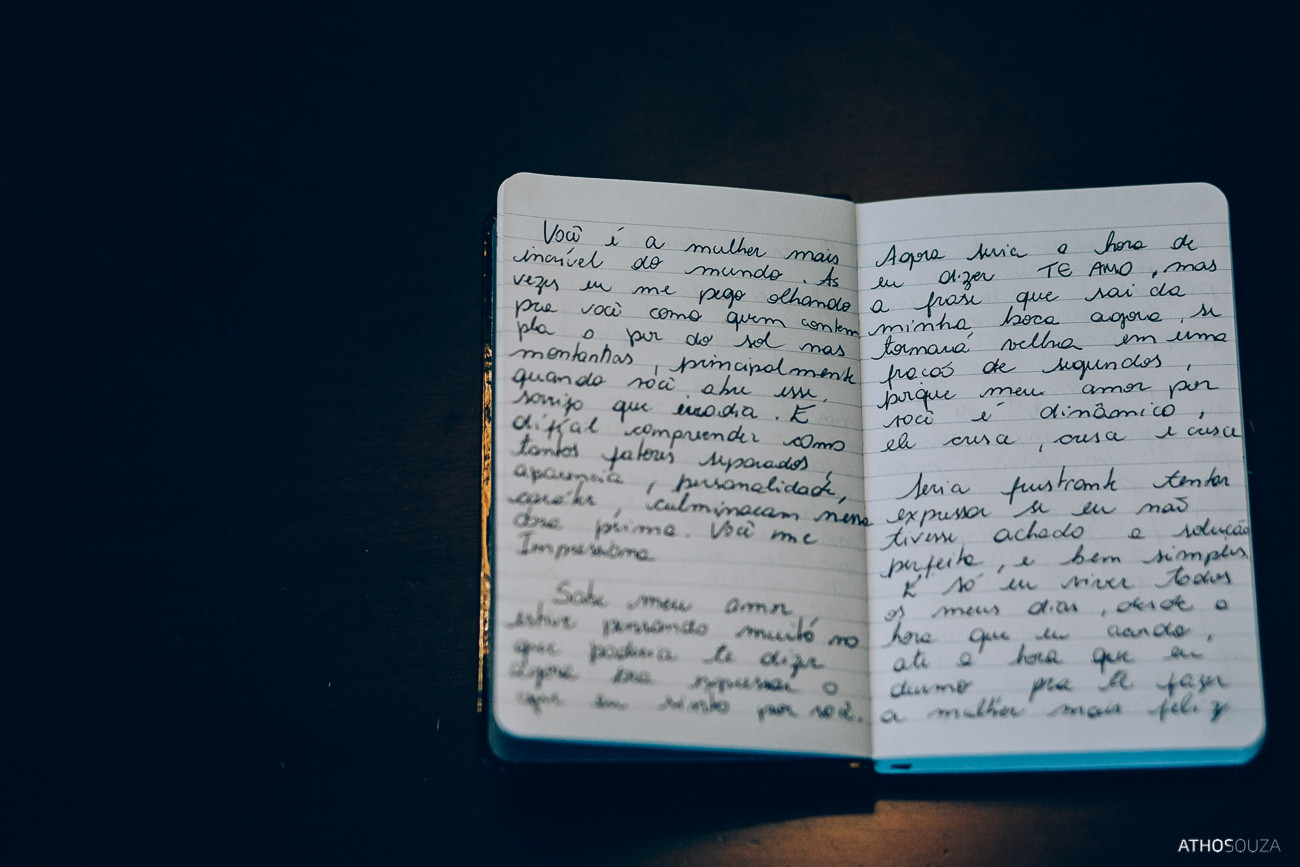 Você é a mulher mais
incrível do mundo. As
vezes eu me pego olhando
pra você como quem contem
pla o por do sol nas
montanhas, principalmente
quando você abre esse,
sorriso que irradia. E
difícal compreender como
tantos fatores separados,
aparencia, personalidade,
caráter, culminaram nessa
obra prima. Você me
Impressiona
Sabe meu amor,
estive pensando muito no
que poderia te dizer
agora para expressar o
que eu sinto por você.
Agora seria a hora de
eu dizer TE AMO, mas
a frase que sai da
minha boca agora, se
tornará velha em uma
fração de segundos,
porque meu amor por
você é dinâmico,
ele cresce, cresce e cresce
Seria frustrante tentar
expressar se eu não
tivesse achado a solução
perfeita, e bem simples
É só eu viver todos
os meus dias, desde a
hora que eu acordo,
até a hora que eu
durmo pra te fazer
a mulher mais feliz
ATHOSOUZA